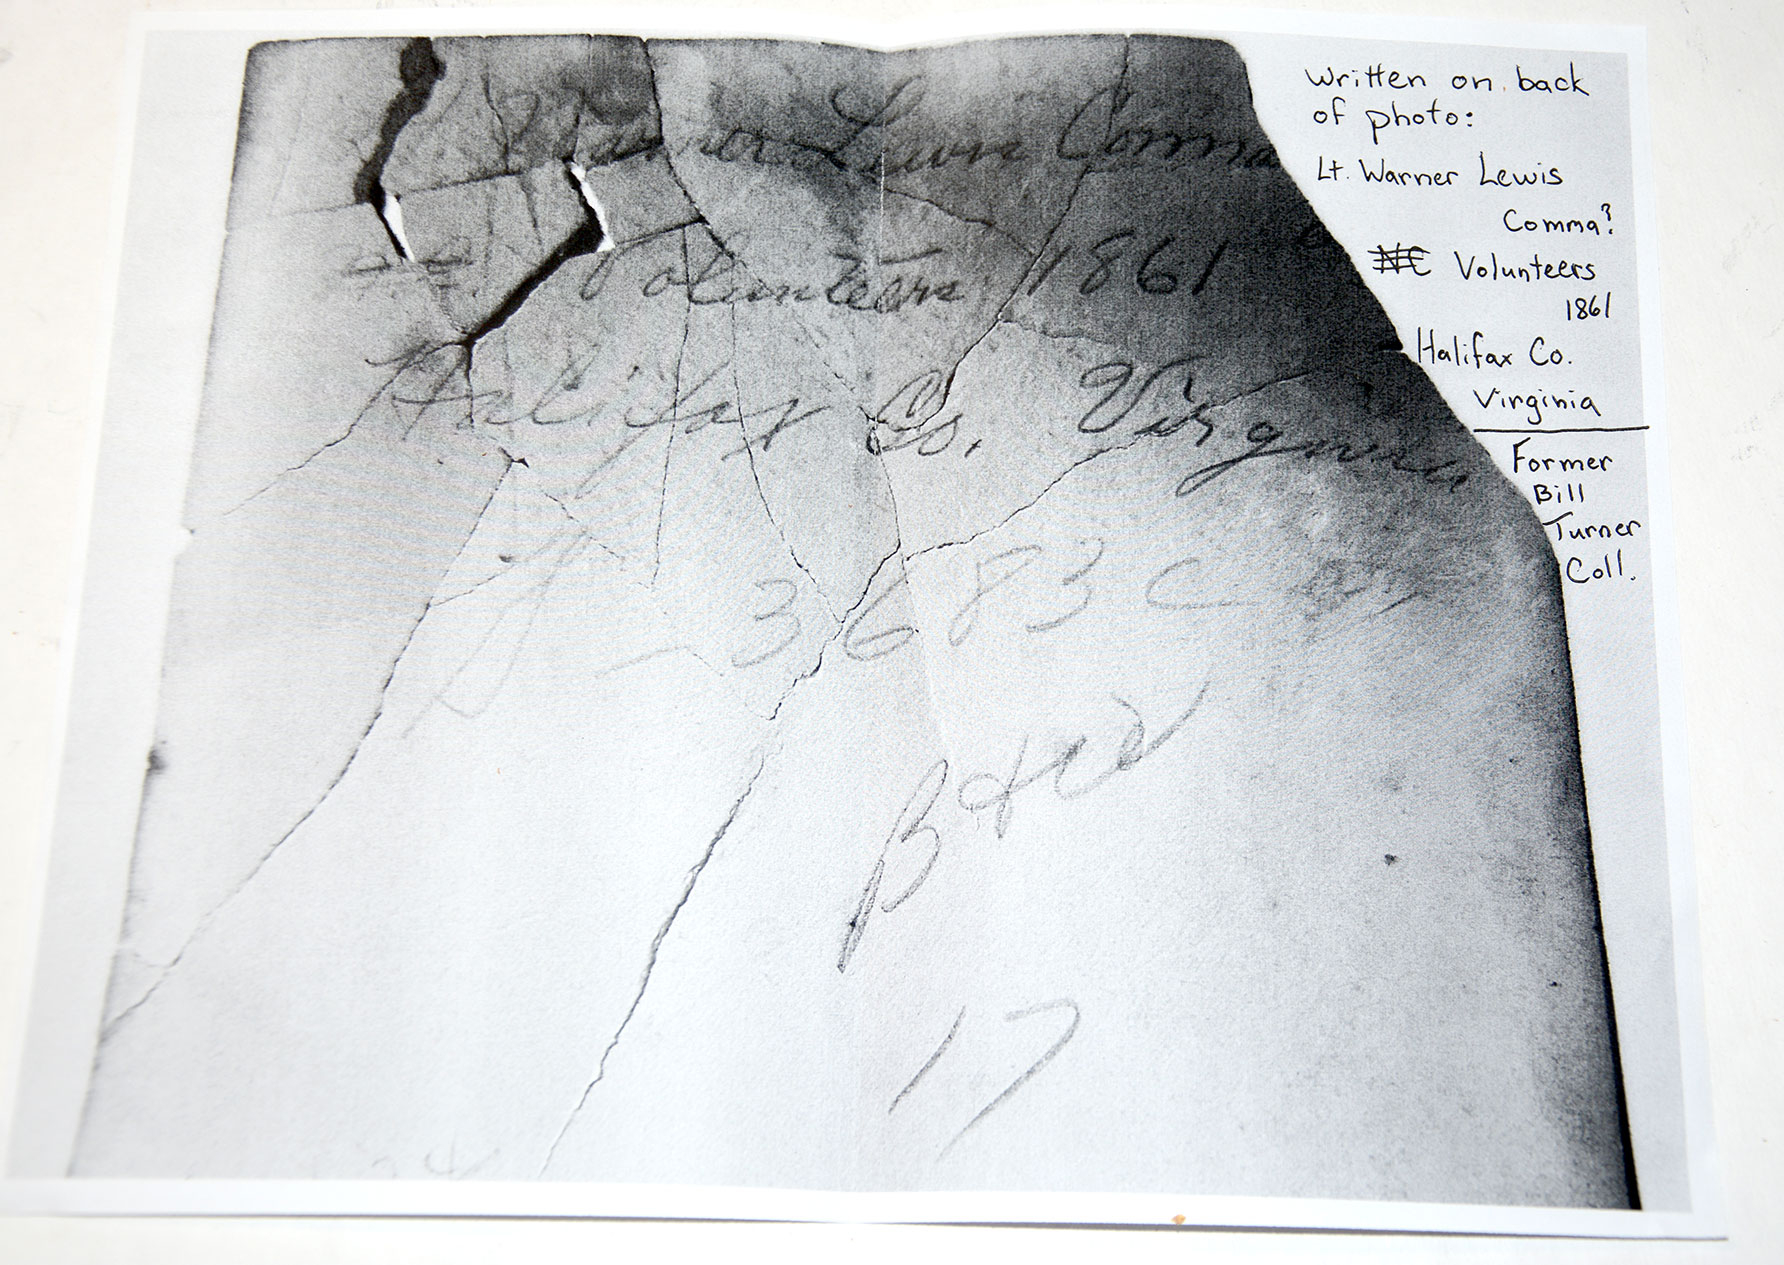 Warner Lewis Comma
Volunteers 1861
Halifax Co. Virginia
3683 C
17
Written on back
of photo:
Lt. Warner Lewis
Comma?
Volunteers
1861
Halifax Co.
Virginia
Former
Bill
Turner
Coll.